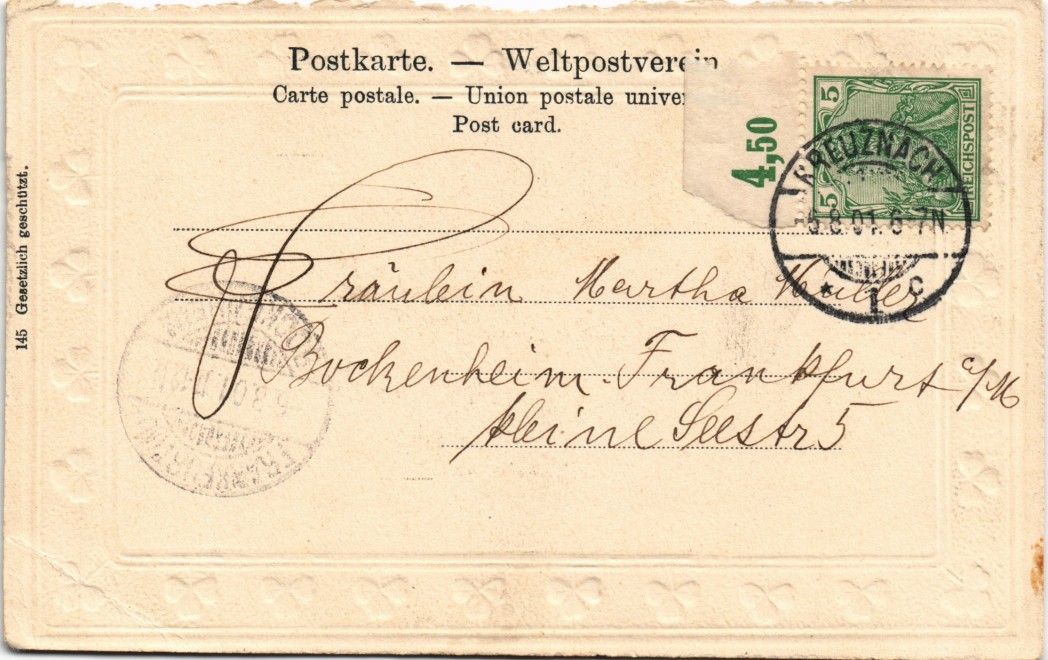 Postkarte. — Weltpostverein
Carte postale. — Union postale univer
Post card.
4,50
5
5
REICHSPOST
KREUZNACH
5.8.01.6-7N
* 1 c
Fräulein Martha Müller
Bockenheim-Frankfurt a/M
kleine Seestr 5
145 Gesetzlich geschützt.